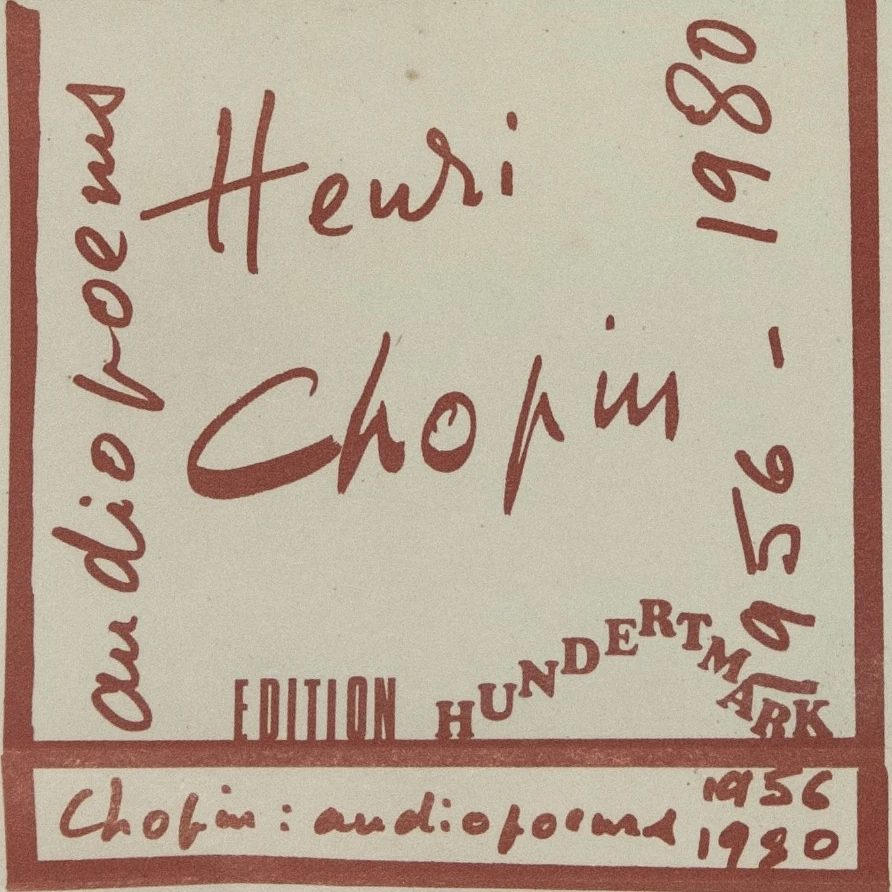 audiopoems
Henri
Chopin
1956 - 1980
EDITION HUNDERTMARK
Chopin: audiopoems 1956
1980